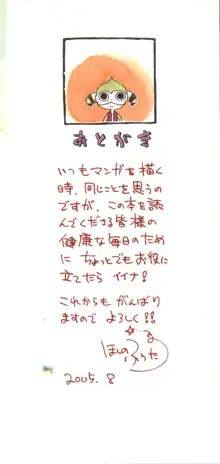 あとがき
いつもマンガを描く
時、同じことを思うの
ですが、この本を読
んでくださる皆様の
健康な毎日のため
に ちょっとでもお役に
立てたら イイナ!
これからも がんばり
ますので よろしく!!
ほしの ふうた
2005. 8